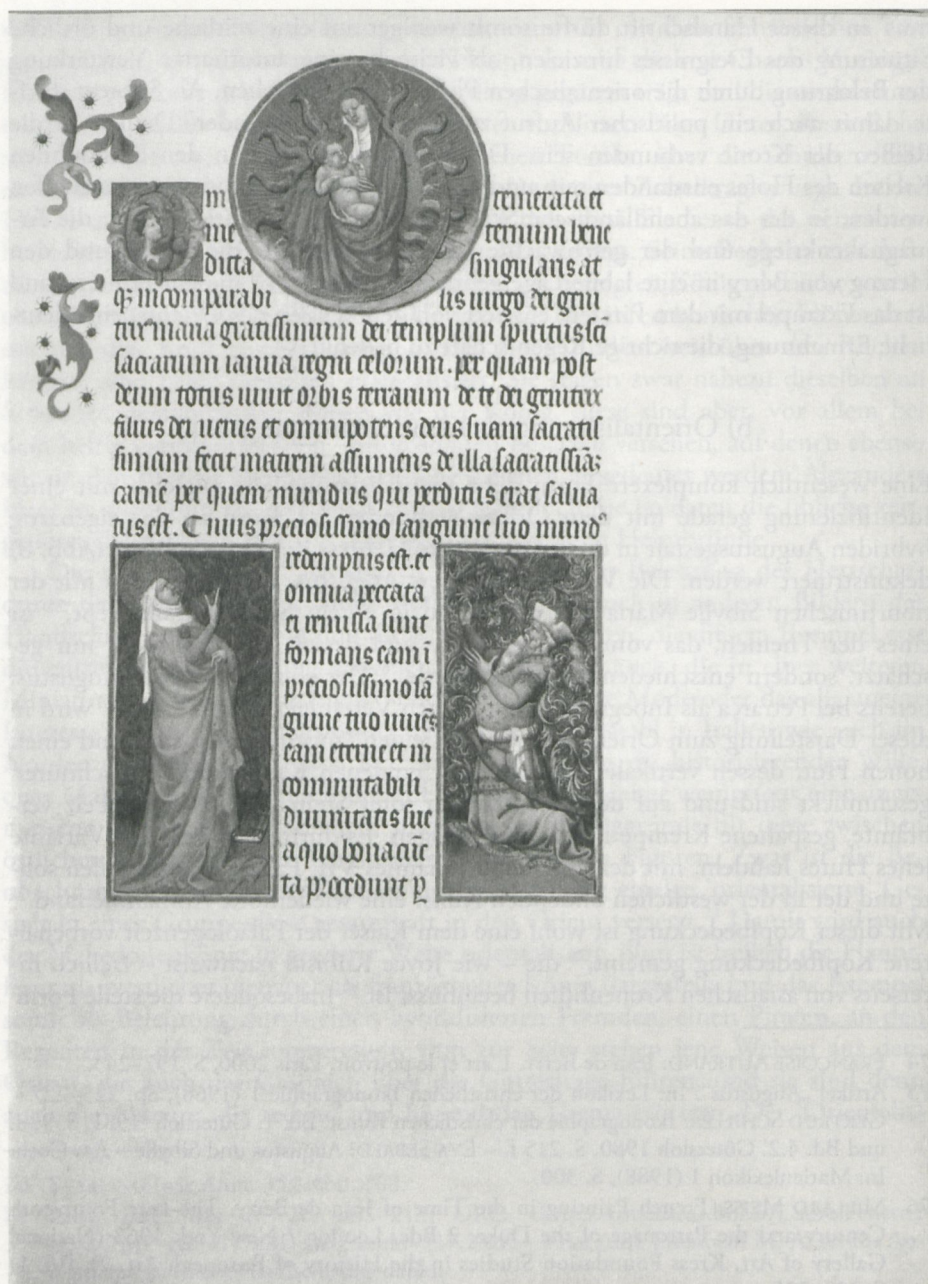 O in temerata et
ine ternum bene
dicta singularis at
qꝫ incomparabi lis uirgo dei geni
trix maria gratissimum dei templum spiritus sci
sacrarium ianua regni celorum. per quam post
deum totus uiuit orbis terrarum de te dei genitrix
filius dei uerus et omnipotens deus suam sacratis
simam fecit matrem assumens de illa sacratissiāꝫ
carnē per quem mundus qui perditus erat salua
tus est. Cuius preciosissimo sanguine suo mundꝰ
redemptus est. et
omnia peccata
ei remissa sunt
formans eam ī
preciosissimo sā
guine tuo
eam eterne et in
commutabili
diuinitatis sue
a quo bona cūc
ta procedunt ꝑ